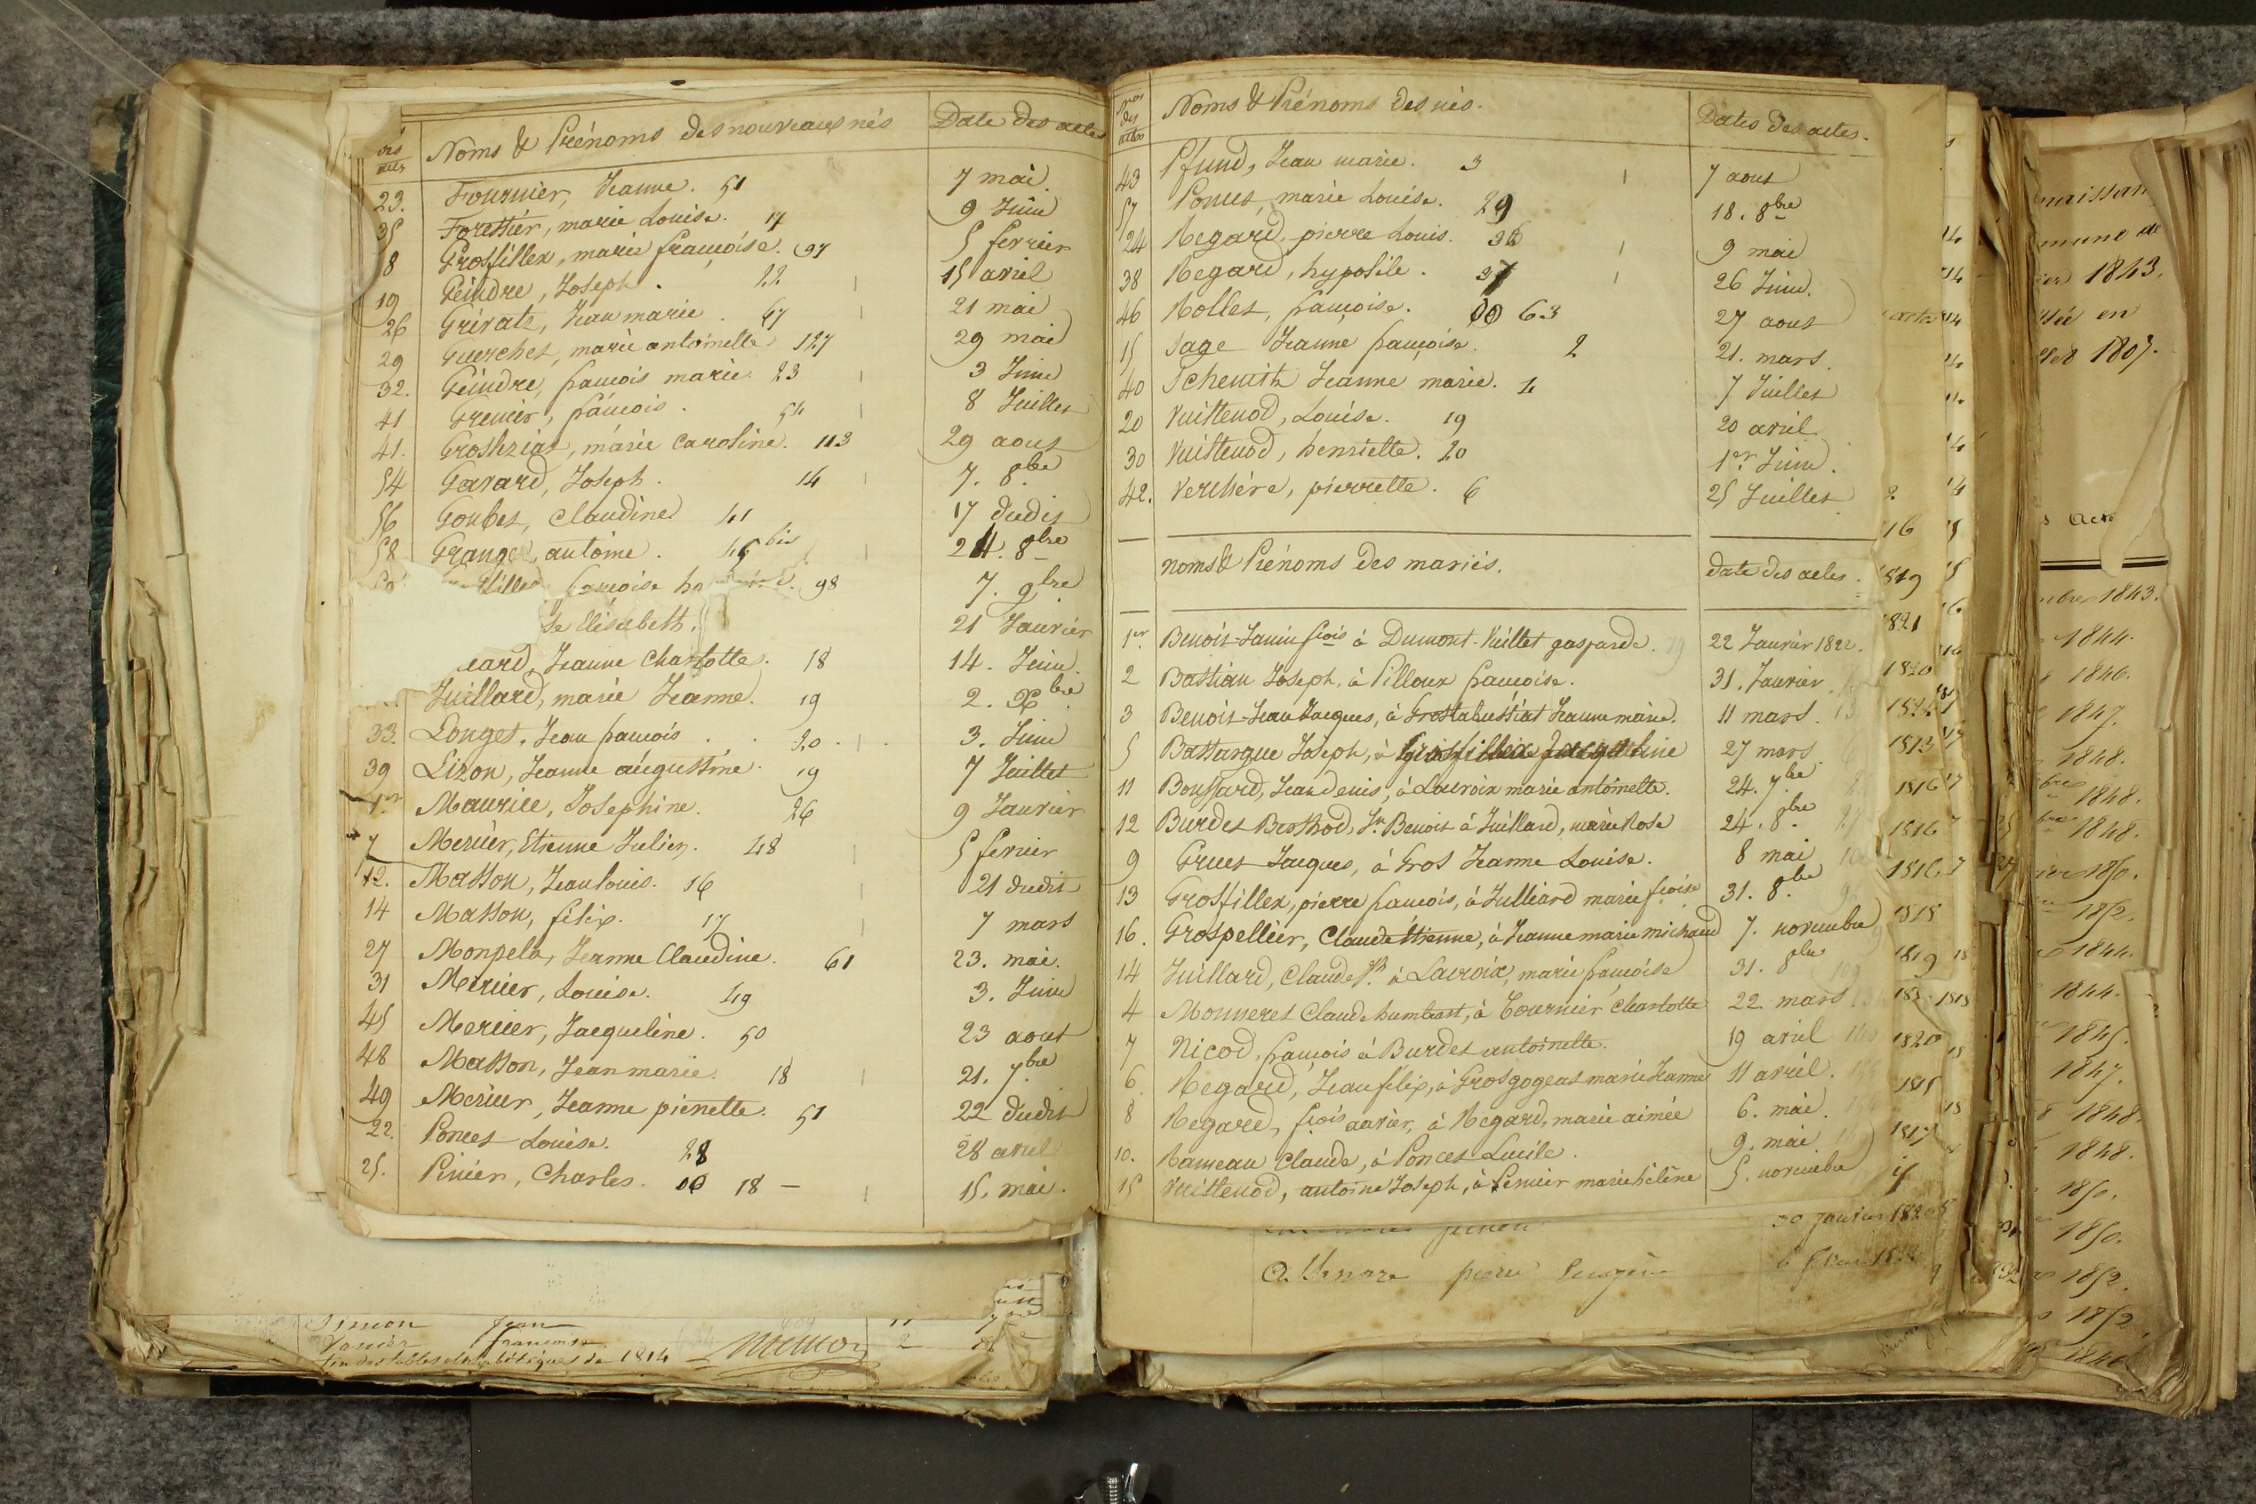 Noms & Prénoms des nouveaux nés Date des actes
23. Fournier, Jeanne. 51 7 mai
35 Forestier, marie Louise. 17 9 Juin
8 Grosfillex, marie françoise. 97 5 fevrier
19 Geindre, Joseph. 22 15 avril
26 Grivatz, Jean marie. 67 21 mai
29 Guerchet, marie antoinette 127 29 mai
32. Geindre, francois marie. 23 3 Juin
41 Grenier, francois. 54 8 Juillet
41. marie Caroline. 113 29 aout
54 Gavard, Joseph. 14 7. 8bre
56 Goubet, Claudine 41 17 dudit
58 Granger, antoine. 45 bis 24. 8bre
françoise 98 7. 9bre
Elisabeth. 21 Janvier
Jeanne Charlotte. 18 14. Juin.
Juillard, marie Jeanne. 19 2. Xbre
33. Longet, Jean francois. 20. 3. Juin
39 Lizon, Jeanne augustine. 19 7 Juillet
1er Maurice, Josephine. 26 9 Janvier
7 Mercier, Etienne Julien. 48 5 fevrier
12. Masson, Jean Louis. 16 21 dudit
14 Masson, félix. 17 7 mars
27 Monpela, Jeanne Claudine. 61 23. mai.
31 Mercier, Louise. 49 3. Juin
45 Mercier, Jacqueline. 50 23 aout
48 Masson, Jean marie. 18 21. 7bre
49 Mercier, Jeanne pierrette. 51 22 dudit
22. Poncet Louise. 28 28 avril
25. Pinier, Charles. 18 – 15. mai.
Nos des actes Noms & Prénoms des nés. Dates des actes.
43 Pfund, Jean marie. 3 7 aout
57 Poncet, marie Louise. 29 18. 8bre
24 Regard, pierre Louis. 36 9 mai
38 Regard, hypolite. 37 26 Juin.
46 Rollet, françoise. 63 27 aout
15 Sage Jeanne françoise. 2 21. mars.
40 Schemith Jeanne marie. 4 7 Juillet
20 Vuittenod, Louise. 19 20 avril
30 Vuittenod, henriette. 20 1er Juin.
42. Verchère, pierrette. 6 25 Juillet
noms & Prénoms des mariés. date des actes.
1er. Benoit-Janin fcois à Dumont-Vuillet gasparde. 22 Janvier 1822.
2 Bastian Joseph, à Pilloux françoise. 31. Janvier
3 Benoit-Jean Jacques, à Jeanne marie. 11 mars.
5 Bassargue Joseph, à Grosfillex Jacqueline 27 mars
11 Boussard, Jean denis, à Lacroix marie antoinette. 24. 7bre
12 Burdet Brothod, Jn. Benoit à Juillard, marie Rose 24. 8bre
9 Gruet Jacques, à Gros Jeanne Louise. 8 mai
13 Grosfillex, pierre francois, à Julliard marie fcoise 31. 8bre
16. Grospellier, Claude Etienne, à Jeanne marie michaud 7. novembre
14 Juillard, Claude à Lacroix, marie françoise 31. 8bre
4 Monneret Claude humbert, à Tournier Charlotte 22 mars
7 Nicod, francois à Burdet antoinette. 19 avril
6 Regard, Jean felix, à Grosgogeat marie Jeanne 11 avril.
8 Regard, fcois xavier, à Regard, marie aimée 6. mai.
10. Rameau Claude, à Poncet Lucile. 9. mai
15 Vuittenod, antoine Joseph, à Pernier marie hélène 5. novembre
pierre
Simon Jean
françoise 2
fin des tables alphabétiques de 1814
1843.
1807.
1843.
1844.
1846.
1847.
1848.
1848.
1848.
1850.
1852.
1844.
1844.
1845.
1847.
1848.
1848.
1850.
1850.
1852.
1852